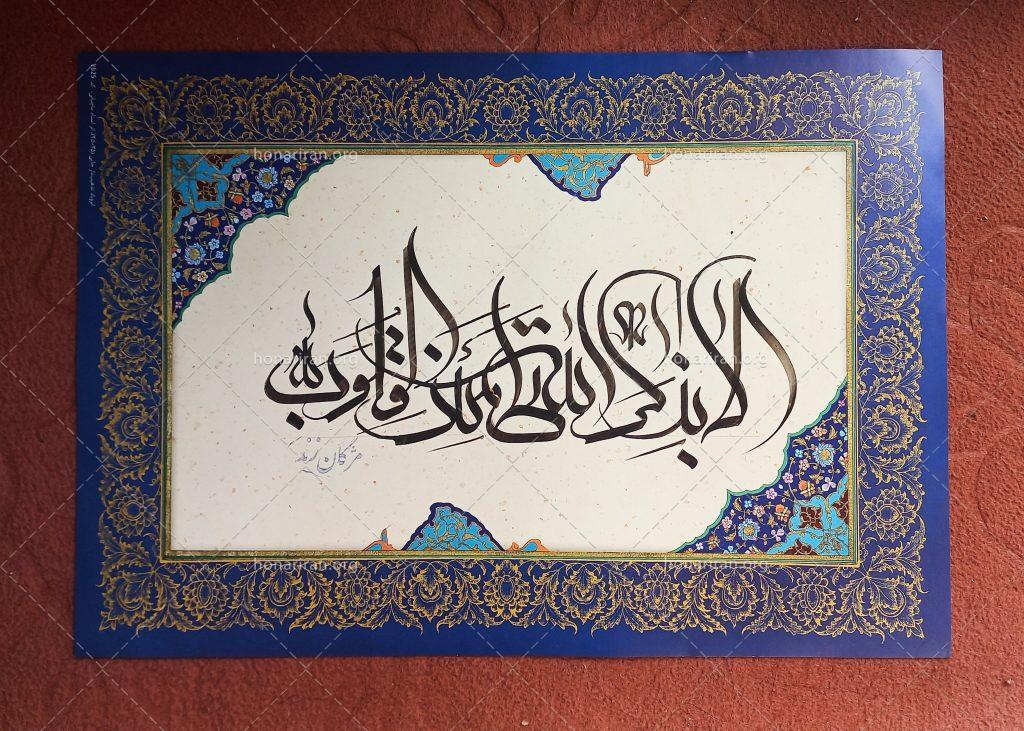 honariran.org honariran.org
الا بذکر الله تطمئن القلوب
honariran.org honariran.org
مژگان زند
honariran.org honariran.org